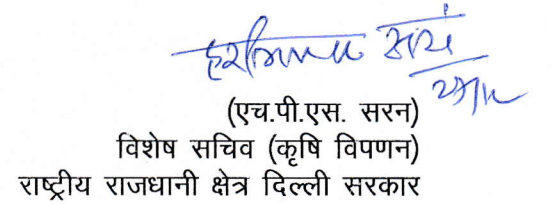 (एच.पी.एस. सरन)
विशेष सचिव (कृषि विपणन)
राष्ट्रीय राजधानी क्षेत्र दिल्ली सरकार